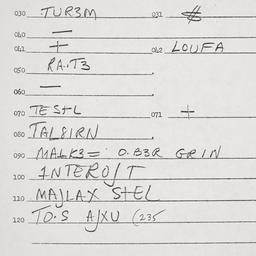 030 TUR3M 031 $
040 —
041 + 042 LOUFA
050 RA..T3
060 —
070 TESTL 071 +
080 TAL8IRN
090 MALK3= 0.B3R GRIN
100 INTERO/T
110 MA/LAX STEL
120 TO.S A/XU (235